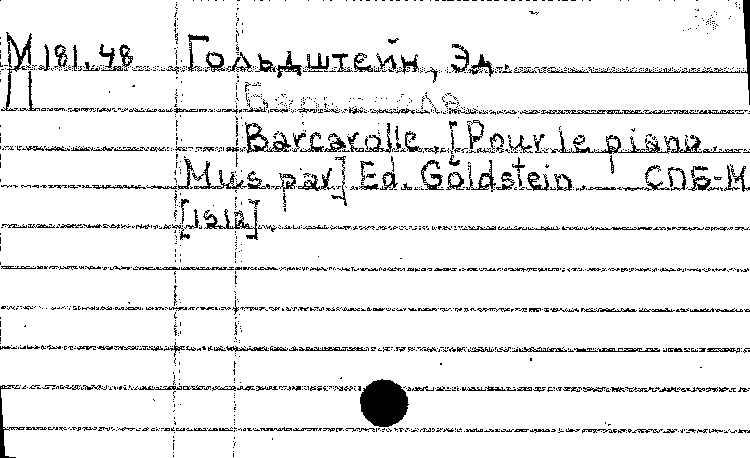 М 181.48 Гольдштейн, Эд.
П
Баркарола
Barcarolle. [Pour le piano.
Mus par] Ed. Goldstein. СПБ-М